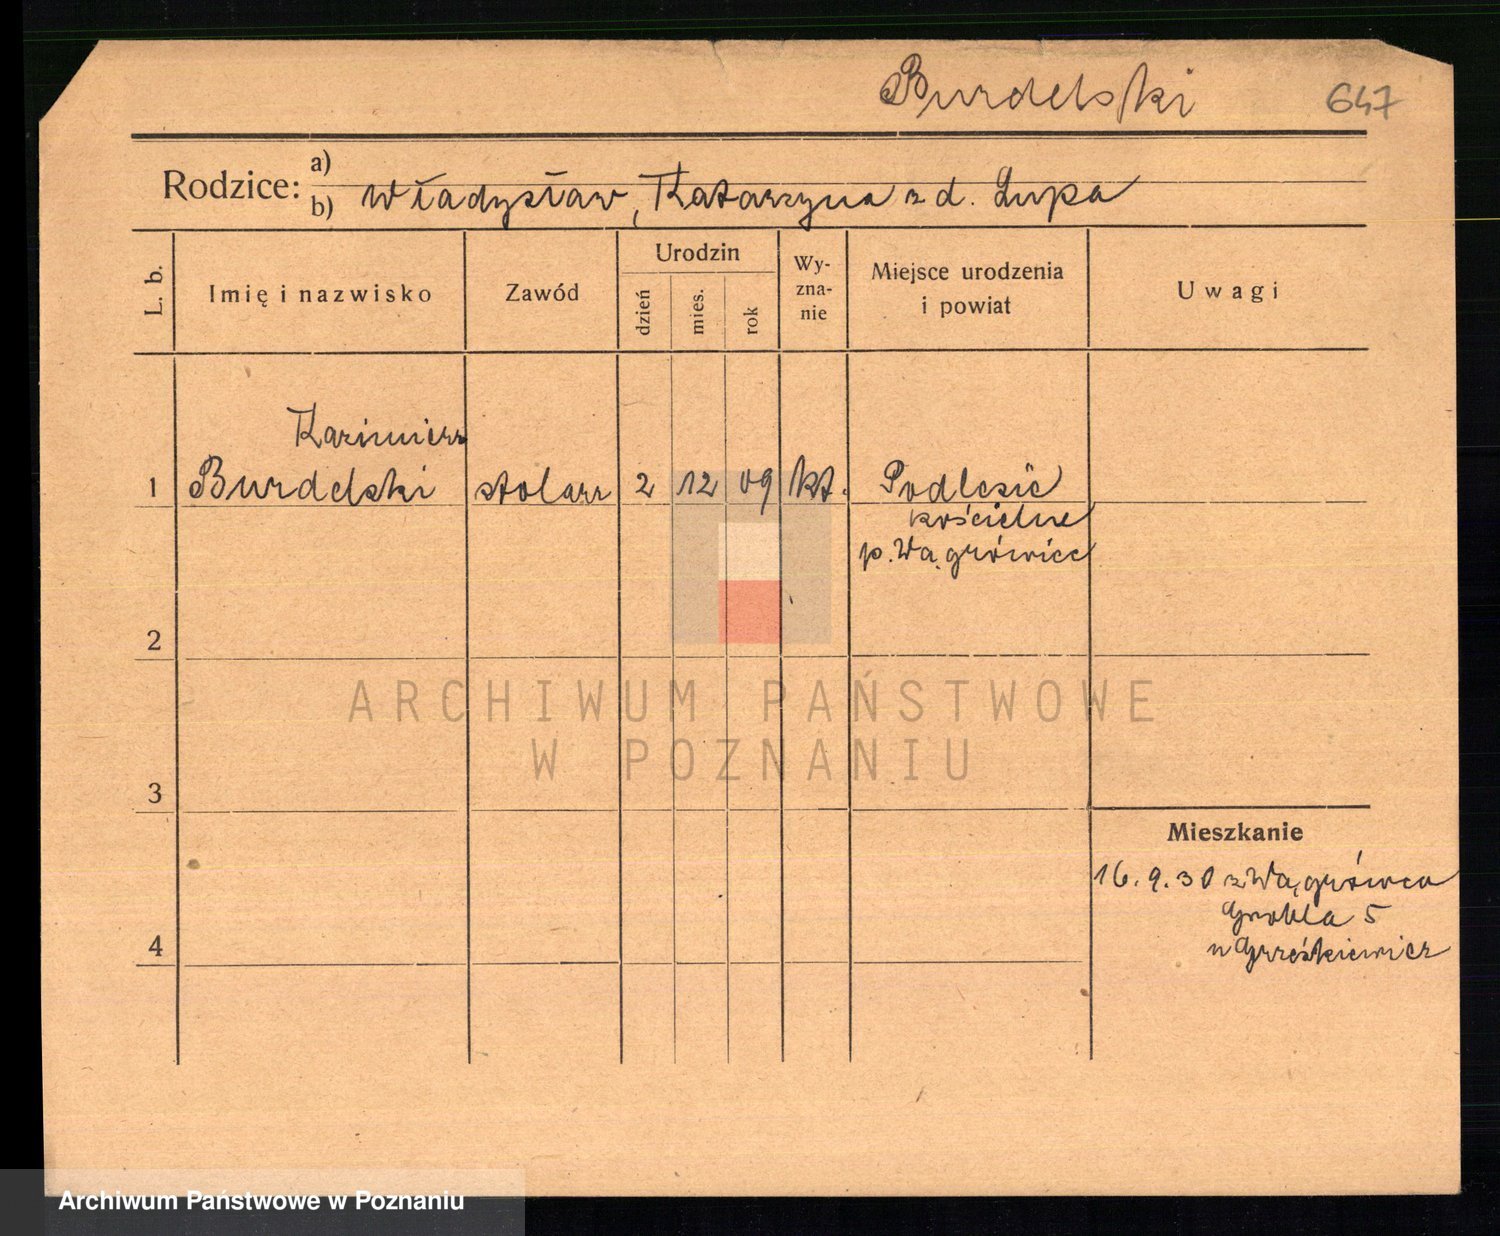 Burdelski 647
Rodzice: a)
b) Władysław, Katarzyna z d. Lupa
L. b.
Imię i nazwisko
Zawód
Urodzin
dzień
mies.
rok
Wy-
zna-
nie
Miejsce urodzenia
i powiat
Uwagi
Kazimierz
1 Burdelski stolarz 2 12 09 kt. Podlesie
kościelne
p. Wągrówiec
2
ARCHIWUM PAŃSTWOWE
W POZNANIU
3
Mieszkanie
16.9.30 z Wągrówca
Grobla 5
4
Archiwum Państwowe w Poznaniu